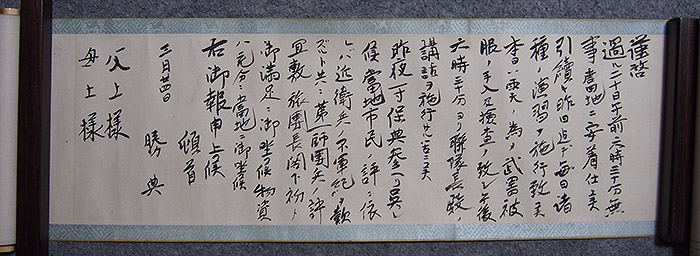 謹啓
過ル二十日午前六時三十分無
事當地ニ安着仕候
引續キ昨日迄毎日諸
種ノ演習ヲ施行致候
本日ハ雨天ノ為メ武器被
服ノ手入及検査ヲ致シ午後
六時三十分ヨリ聯隊長殿
講話ヲ施行
昨夜一寸保典参リ
候當地市民ノ評ニ依
レハ近衛兵ノ不軍紀
ズト共ニ第一師團兵ノ評
宜敷旅團長閣下初メ
御満足ニ御坐候物資
ハ充分ニ當地ニ御坐候
右御報申上候
頓首
三月廿四日
勝典
父上様
母上様